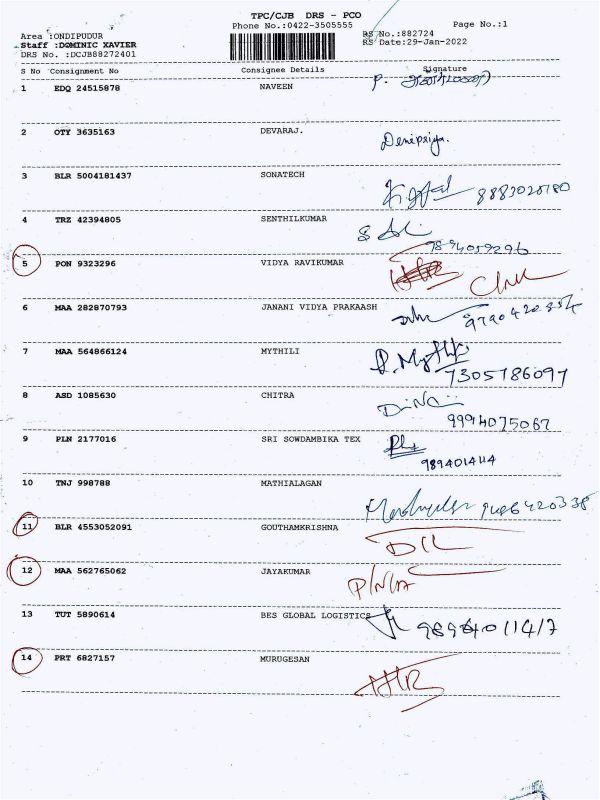 TPC/CJB DRS - PCO
Phone No.:0422-3505555 Page No.:1
Area :ONDIPUDUR RS No.:882724
Staff :DOMINIC XAVIER RS Date:29-Jan-2022
DRS No. :DCJB88272401
S No Consignment No Consignee Details Signature
1 EDQ 24515878 NAVEEN P.
2 OTY 3635163 DEVARAJ.
3 BLR 5004181437 SONATECH
4 TRZ 42394805 SENTHILKUMAR
5 PON 9323296 VIDYA RAVIKUMAR
6 MAA 282870793 JANANI VIDYA PRAKAASH
7 MAA 564866124 MYTHILI
7305786097
8 ASD 1085630 CHITRA
9994075067
9 PLN 2177016 SRI SOWDAMBIKA TEX
9894014114
10 TNJ 998788 MATHIALAGAN
11 BLR 4553052091 GOUTHAMKRISHNA
12 MAA 562765062 JAYAKUMAR
13 TUT 5890614 BES GLOBAL LOGISTICS
14 PRT 6827157 MURUGESAN